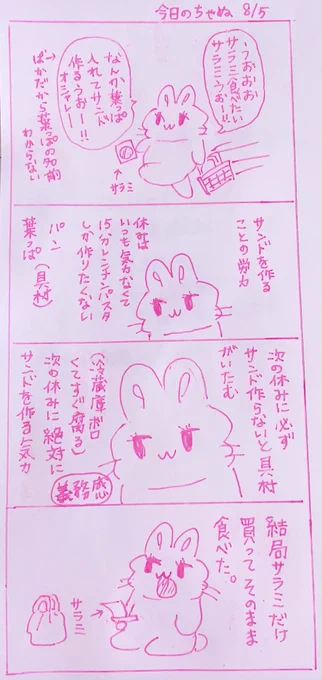 今日のちゃぬ 8/5
うおおお
サラミ食べたい
サラミうおー!!
なんか葉っぱ
入れてサンド
作るうおー!!
オシャレ
↑
サラミ
→ばかだから葉っぱの名前
わからない
サンドを作る
ことの労力
休みは
いつも気力なくて
15分レンチンパスタ
しか作りたくない
パン
葉っぱ(具材)
次の休みに必ず
サンド作らないと具材
がいたむ
(冷蔵庫ボロ
くてすぐ腐る)
次の休みに絶対に
サンドを作る気力
義務感
結局サラミだけ
買ってそのまま
食べた。
サラミ
→